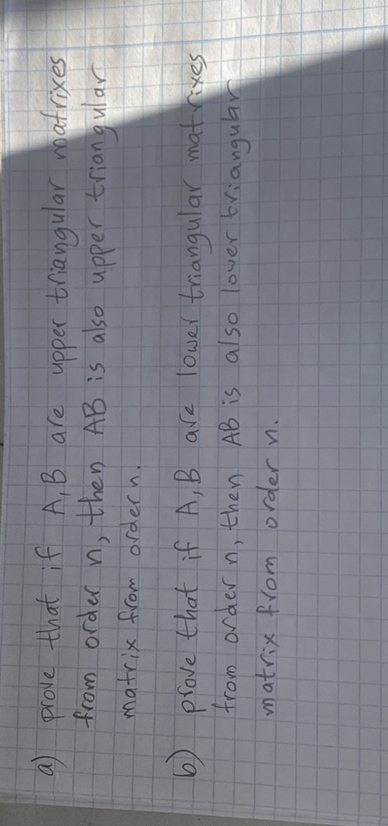 a) prove that if A,B are upper triangular matrixes
from order n, then AB is also upper triangular
matrix from order n.
b) prove that if A,B are lower triangular matrixes
from order n, then AB is also lower triangular
matrix from order n.